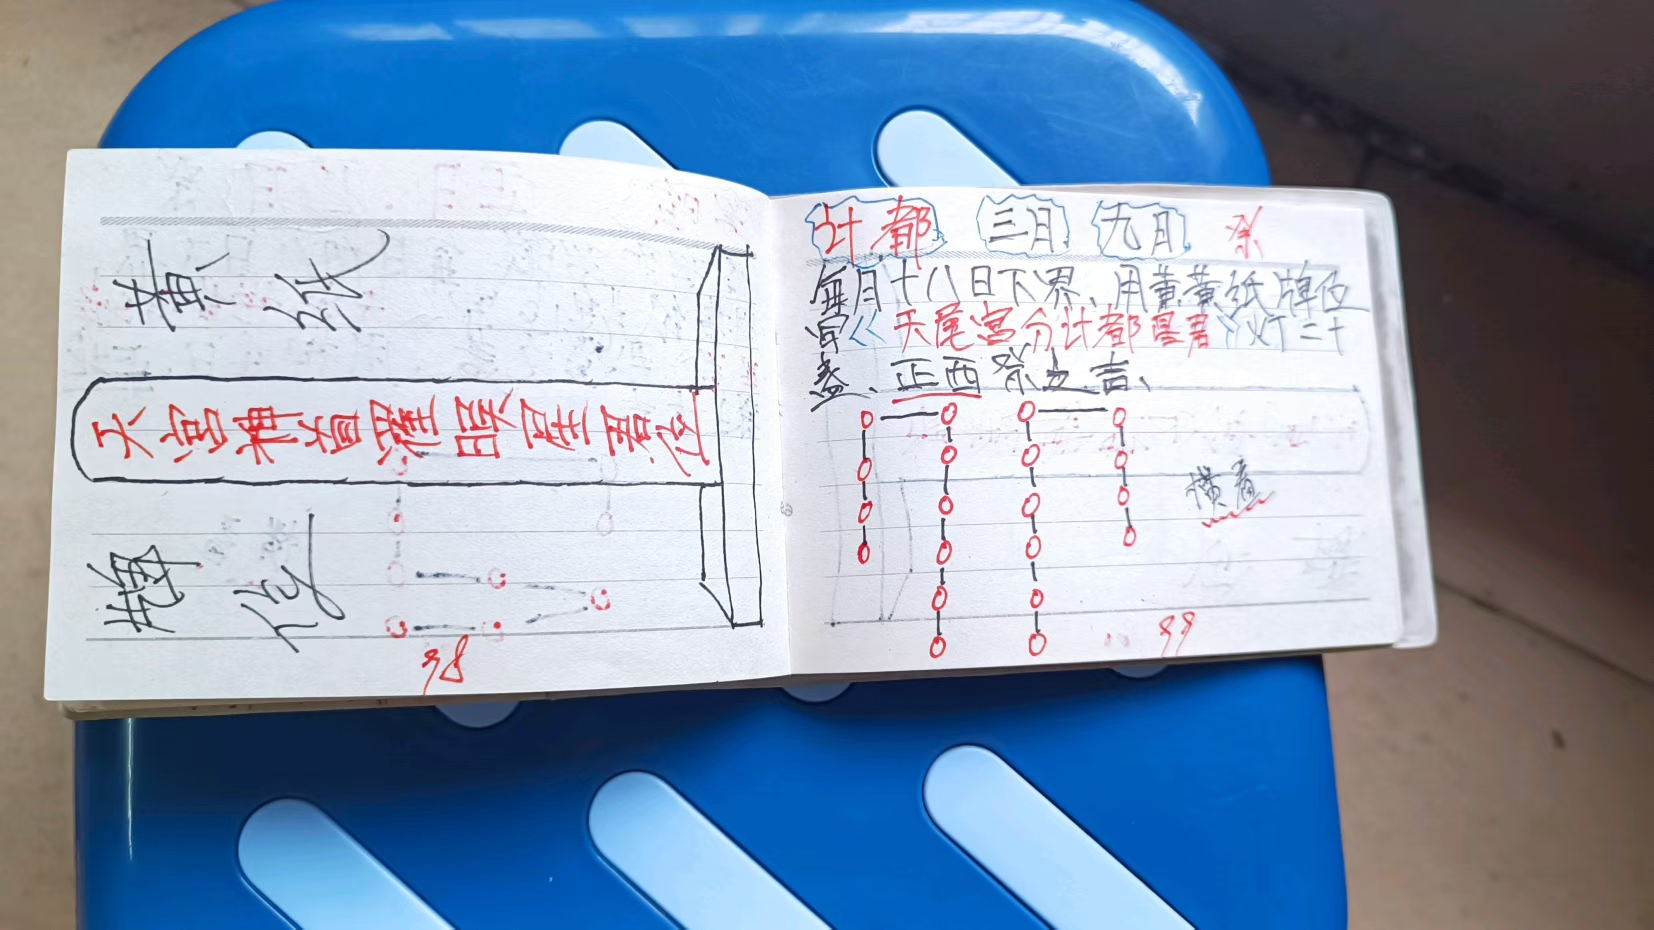 黄纸
天宫神首罗睺星主星君
牌位
98
计都 三月 九月 祭
每月十八日下界、用黄黄纸牌位
写《天尾宫分计都星君》灯二十
盏、正西祭之吉、
横看
99